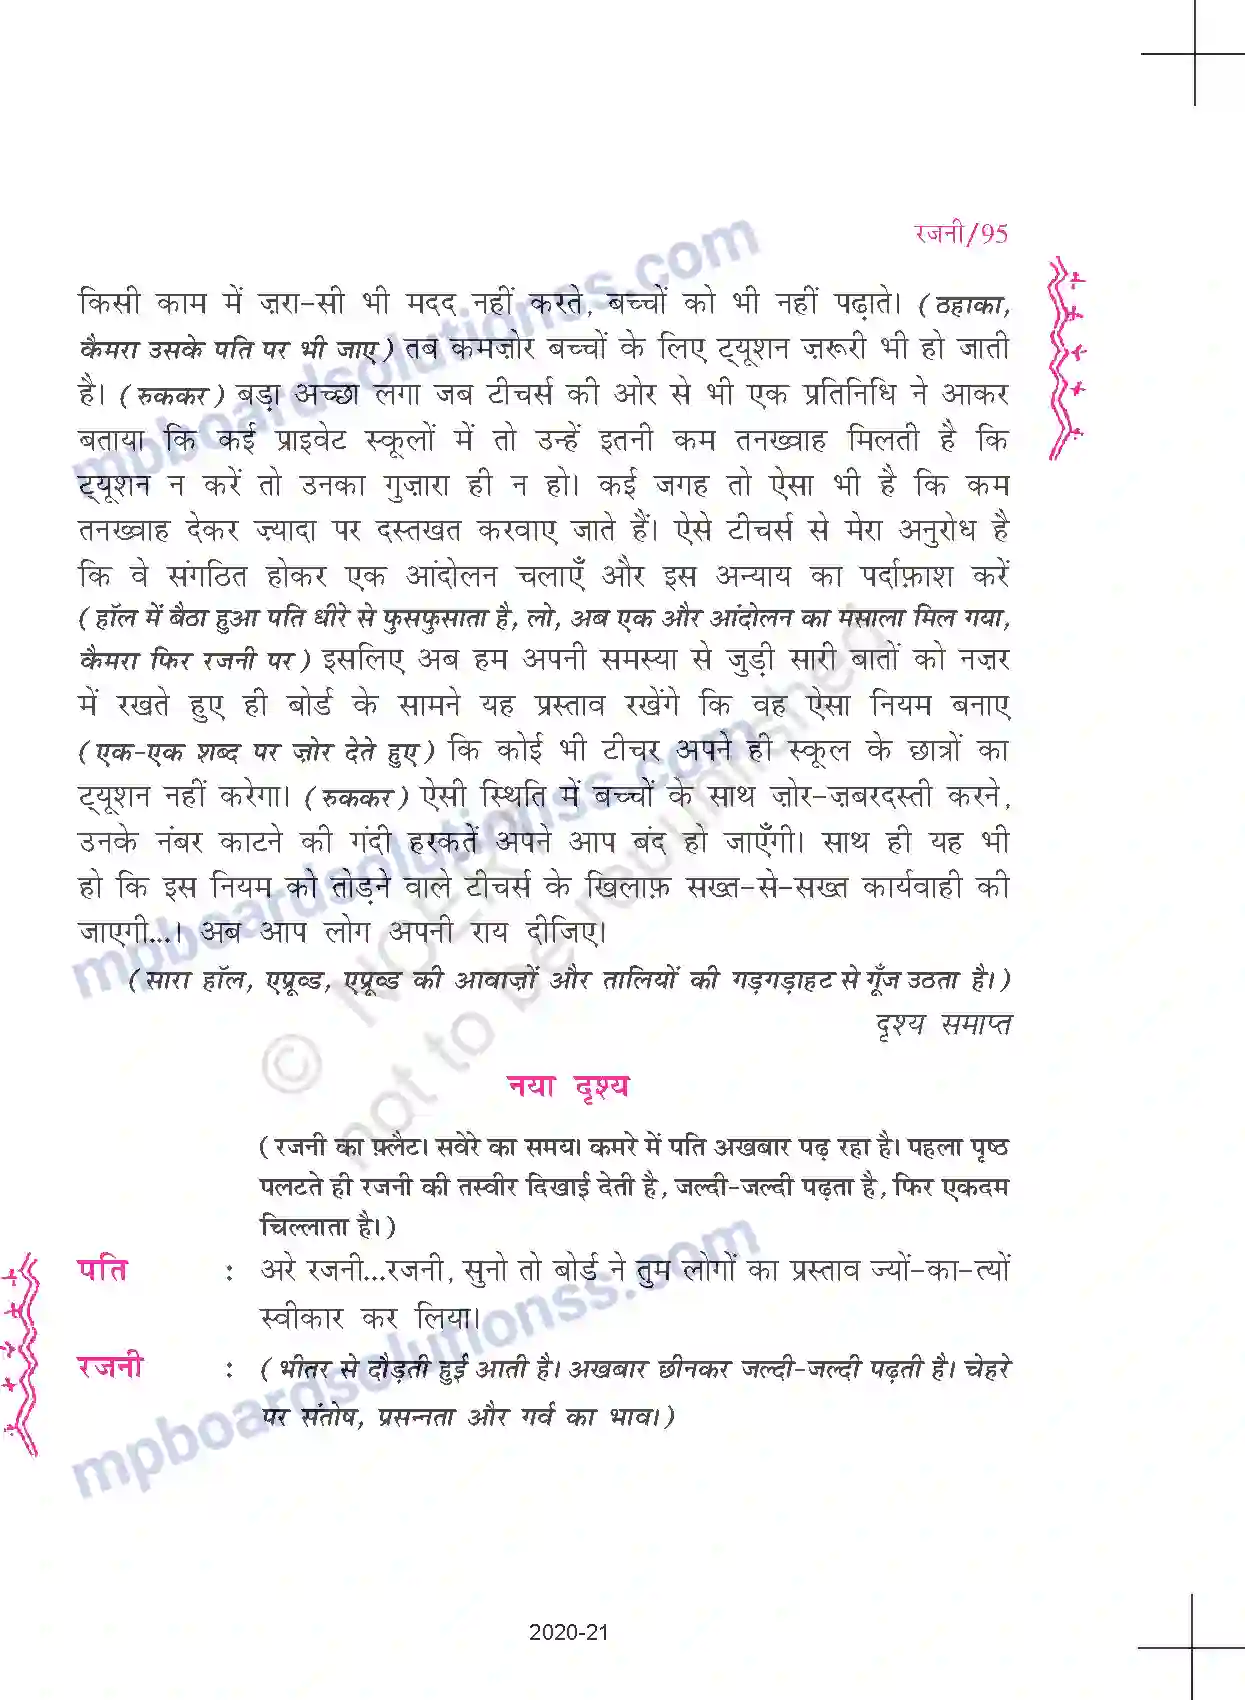 रजनी/95
किसी काम में ज़रा-सी भी मदद नहीं करते, बच्चों को भी नहीं पढ़ाते। (ठहाका,
कैमरा उसके पति पर भी जाए) तब कमज़ोर बच्चों के लिए ट्यूशन ज़रूरी भी हो जाती
है। (रुककर) बड़ा अच्छा लगा जब टीचर्स की ओर से भी एक प्रतिनिधि ने आकर
बताया कि कई प्राइवेट स्कूलों में तो उन्हें इतनी कम तनख्वाह मिलती है कि
ट्यूशन न करें तो उनका गुज़ारा ही न हो। कई जगह तो ऐसा भी है कि कम
तनख्वाह देकर ज़्यादा पर दस्तखत करवाए जाते हैं। ऐसे टीचर्स से मेरा अनुरोध है
कि वे संगठित होकर एक आंदोलन चलाएँ और इस अन्याय का पर्दाफ़ाश करें
(हॉल में बैठा हुआ पति धीरे से फुसफुसाता है, लो, अब एक और आंदोलन का मसाला मिल गया,
कैमरा फिर रजनी पर) इसलिए अब हम अपनी समस्या से जुड़ी सारी बातों को नज़र
में रखते हुए ही बोर्ड के सामने यह प्रस्ताव रखेंगे कि वह ऐसा नियम बनाए
(एक-एक शब्द पर ज़ोर देते हुए) कि कोई भी टीचर अपने ही स्कूल के छात्रों का
ट्यूशन नहीं करेगा। (रुककर) ऐसी स्थिति में बच्चों के साथ ज़ोर-ज़बरदस्ती करने,
उनके नंबर काटने की गंदी हरकतें अपने आप बंद हो जाएँगी। साथ ही यह भी
हो कि इस नियम को तोड़ने वाले टीचर्स के खिलाफ़ सख्त-से-सख्त कार्यवाही की
जाएगी...। अब आप लोग अपनी राय दीजिए।
(सारा हॉल, एप्रूव्ड, एप्रूव्ड की आवाज़ों और तालियों की गड़गड़ाहट से गूँज उठता है।)
दृश्य समाप्त
नया दृश्य
(रजनी का फ़्लैट। सवेरे का समय। कमरे में पति अखबार पढ़ रहा है। पहला पृष्ठ
पलटते ही रजनी की तस्वीर दिखाई देती है, जल्दी-जल्दी पढ़ता है, फिर एकदम
चिल्लाता है।)
पति : अरे रजनी...रजनी, सुनो तो बोर्ड ने तुम लोगों का प्रस्ताव ज्यों-का-त्यों
स्वीकार कर लिया।
रजनी : (भीतर से दौड़ती हुई आती है। अखबार छीनकर जल्दी-जल्दी पढ़ती है। चेहरे
पर संतोष, प्रसन्नता और गर्व का भाव।)
2020-21
mpboardsolutionss.com
mpboardsolutionss.com
mpboardsolutionss.com
© NCERT
not to be republished